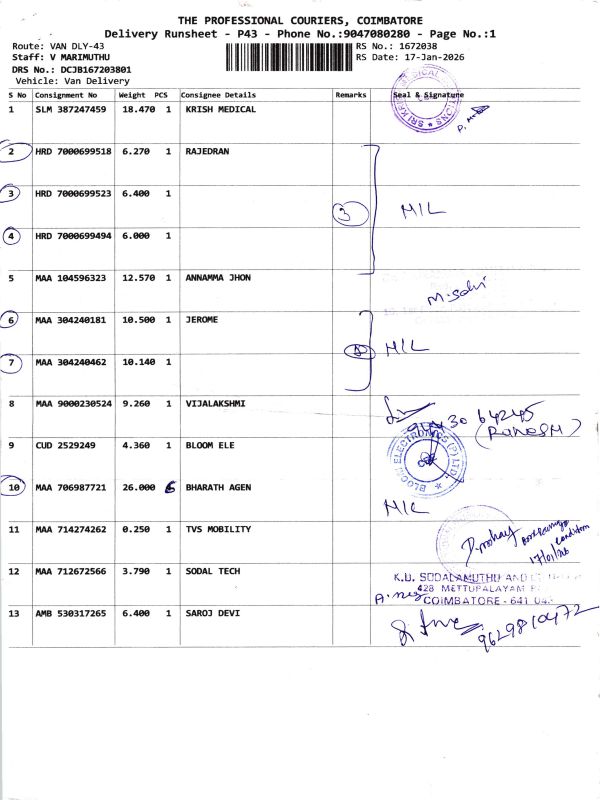 THE PROFESSIONAL COURIERS, COIMBATORE
Delivery Runsheet - P43 - Phone No.:9047080280 - Page No.:1
Route: VAN DLY-43
Staff: V MARIMUTHU
DRS No.: DCJB167203801
Vehicle: Van Delivery
RS No.: 1672038
RS Date: 17-Jan-2026
S No Consignment No Weight PCS Consignee Details Remarks Seal & Signature
1 SLM 387247459 18.470 1 KRISH MEDICAL
2 HRD 7000699518 6.270 1 RAJEDRAN
3 HRD 7000699523 6.400 1
3 NIL
4 HRD 7000699494 6.000 1
5 MAA 104596323 12.570 1 ANNAMMA JHON
M. Selvi
6 MAA 304240181 10.500 1 JEROME
NIL
7 MAA 304240462 10.140 1
8 MAA 9000230524 9.260 1 VIJALAKSHMI
64245
9 CUD 2529249 4.360 1 BLOOM ELE
BLOOM ELECTRONICS (P) LTD.
10 MAA 706987721 26.000 6 BHARATH AGEN
NIL
11 MAA 714274262 0.250 1 TVS MOBILITY
condition
17/01/26
12 MAA 712672566 3.790 1 SODAL TECH
K.U. SODALAMUTHU AND
428 METTUPALAYAM
COIMBATORE - 641
13 AMB 530317265 6.400 1 SAROJ DEVI
9629810472